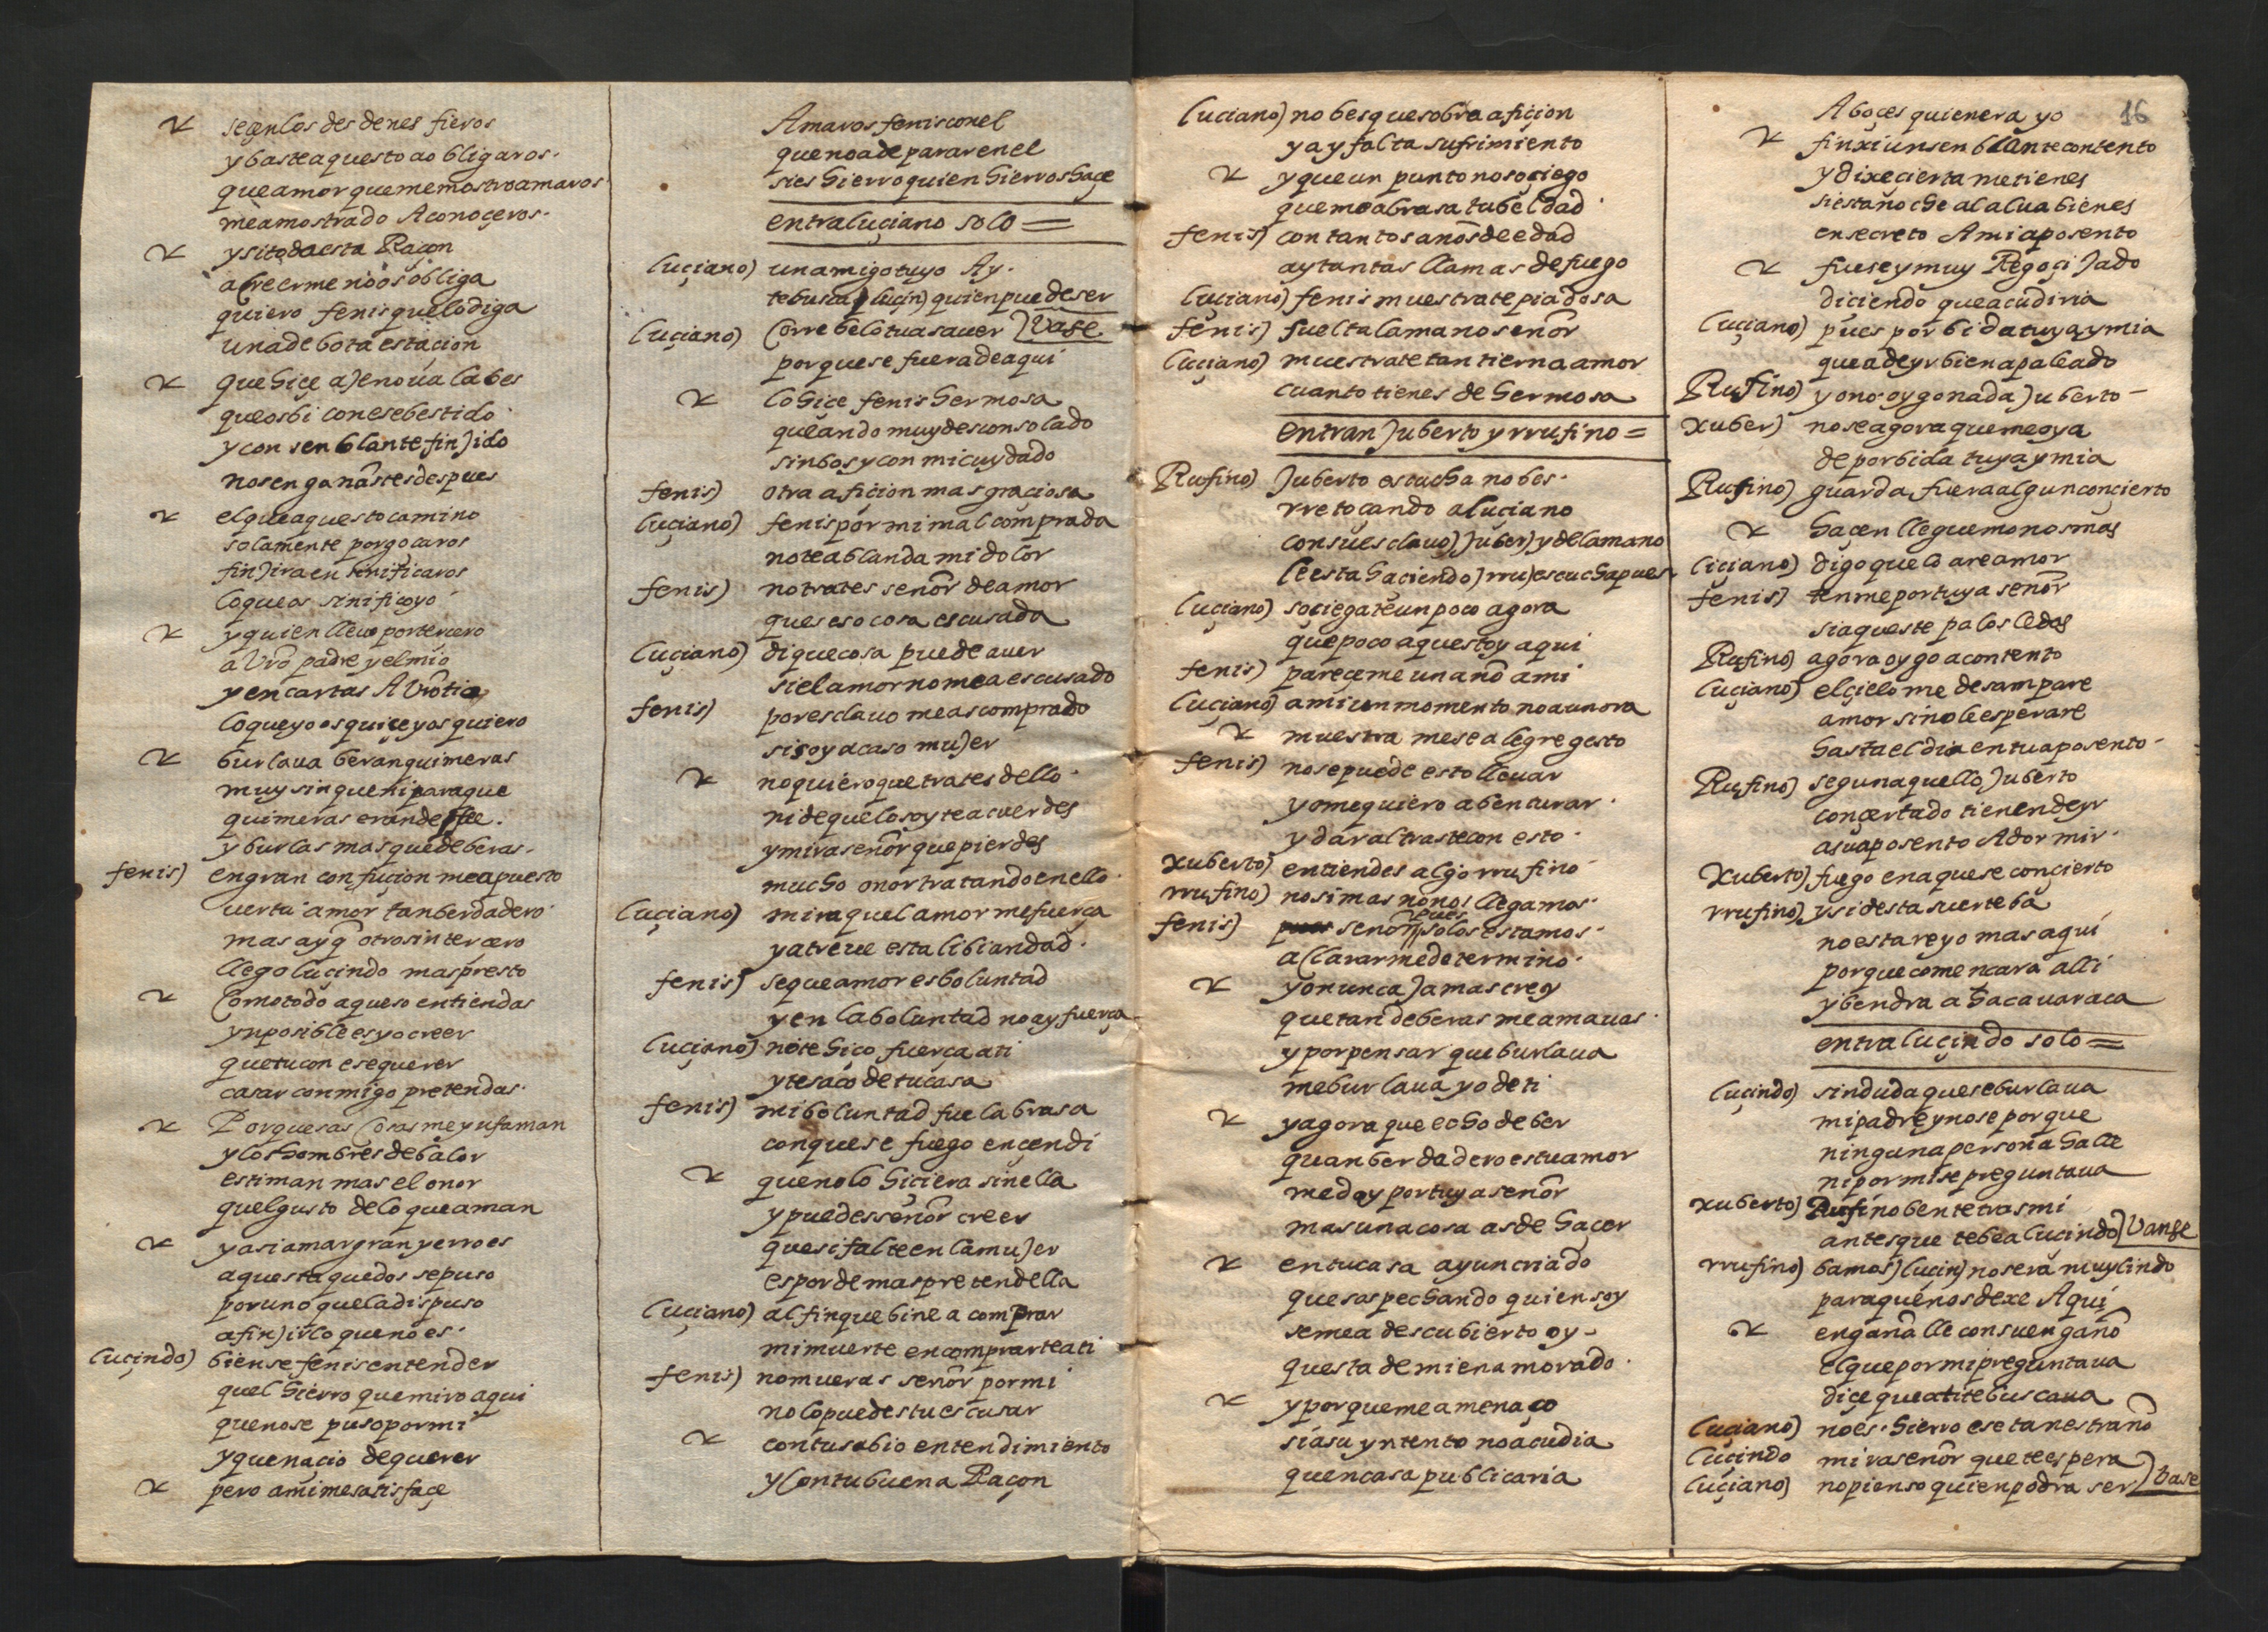 seçen los desdenes fieros
y baste aquesto a obligaros.
que amor que me mostro amaros
me a mostrado A conoçeros.
y si toda esta Raçon
a creerme no os obliga
quiero fenis que lo diga
una debota estaçion
que hiçe a Jenoua la bes
que os bi con ese bestido
y con senblante finJido
nos engañastes despues
el que aquesto camino
solamente por goçaros
finJira en sinificaros
lo que os sinifico yo
y quien lleuo por terçero
a Vro padre y el mio
y en cartas A Vro tio
lo que yo os quiçe y os quiero
burlaua beran quimeras
muy sin que ni para que
quimeras eran de fee.
y burlas mas que de beras.
fenis) en gran confuçion me a puesto
uer tu amor tan berdadero
mas ay q otros in terçero
llego luçindo mas presto
Como todo aqueso entiendas
ynposible es yo creer
que tu con ese querer
casar conmigo pretendas.
Porque sas Cosas me ynfaman
y los hombres de balor
estiman mas el onor
quel gusto de lo que aman
y asi amar gran yerro es
aquesta que dos se puso
por uno que la dispuso
a finJir lo que no es.
luçindo) bien se fenis entender
quel hierro que miro aqui
que no se puso por mi
y que naçio de querer
pero a mi me satisfaçe
Amaros fenis con el
que no a de parar en el
si es hierro quien hierros haçe
entra luçiano solo =
luçiano) un amigo tuyo Ay.
te busca luçin) quien puede ser
luçiano) Corre belo tu a sauer) Vase
porque se fuera de aqui
lo hiçe fenis hermosa
que ando muy desconsolado
sin bos y con mi cuydado
fenis) otra afiçion mas graçiosa
luçiano) fenis por mi mal comprada
no te ablanda mi dolor
fenis) no trates señor de amor
ques eso cosa escusada
luçiano) di que cosa puede auer
si el amor no me a escusado
fenis) por esclauo me as comprado
si soy acaso muJer
no quiero que trates dello.
ni de que lo soy te acuerdes
y mira señor que pierdes
mucho onor tratando en ello.
luçiano) mira quel amor me fuerça
y atreue esta libiandad.
fenis) se que amor es boluntad
y en la boluntad no ay fuerça
luçiano) no te hiço fuerça a ti
y te saco de tu casa
fenis) mi boluntad fue la brasa
con que se fuego ençendi
que no lo hiçiera sin ella
y puedes señor creer
que si falte en la muJer
es por demas pretendella
luçiano) al fin que bine a comprar
mi muerte en comprarte a ti
fenis) no mueras señor por mi
no lo puedes tu escusar
con tu sabio entendimiento
y Con tu buena Raçon
luçiano) no bes que sobra afiçion
ya y falta sufrimiento
y que un punto no soçiego
que me abrasa tu beldad.
fenis) con tantos años de edad
ay tantas llamas de fuego
luçiano) fenis muestrate piadosa
fenis) suelta la mano señor
luçiano) muestrate tan tierna a amor
cuanto tienes de hermosa
entran Juberto y rrufino =
Rufino) Juberto escucha no bes.
rretoçando a luçiano
con su esclauo) Juber) y de la mano
le esta haçiendo) rru) escucha pues
luçiano) soçiegate un poco agora
que poco a questoy aqui
fenis) pareçeme un año a mi
luçiano) a mi un momento no a un ora
muestra mese alegre gesto
fenis) no se puede esto lleuar
yo me quiero abenturar.
y dar al traste con esto.
xuberto) entiendes algo rrufino
rrufino) no si mas no nos llegamos.
fenis) señor pues solos estamos.
a Clarar me determino.
yo nunca Jamas crey
que tan de beras me amauas.
y por pensar que burlaua
me burlaua yo de ti
y agora que echo de ber
quan berdadero es tu amor
me doy por tuya señor
mas una cosa as de haçer
en tu casa ay un criado
que sospechando quien soy
se me a descubierto oy.
questa de mi enamorado.
y porque me amenaço
si a su yntento no acudia
quen casa publicaria
16
A boçes quien era yo
finxi un senblante contento
y dixe çierta me tienes
si esta noche al alua bienes
en secreto A mi aposento
fuese y muy RegoçiJado
diçiendo que acudiria
luçiano) pues por bida tuya y mia
que a de yr bien apaleado
Rufino) yo no oygo nada Juberto
xuber) no se agora que me oya
de por bida tuya y mia
Rufino) guarda fuera algun conçierto
haçen lleguemonos mas
liçiano) digo que lo are amor
fenis) tenme por tuya señor
si aqueste palos le das
Rufino) agora oygo a contento
luçiano) el çielo me desampare
amor si no le esperare
hasta el dia en tu aposento
Rufino) segun aquello Juberto
conçertado tienen de yr
a su aposento A dormir.
Xuberto) fuego en aquese conçierto
rrufino) y si desta suerte ba
no estare yo mas aqui
porque començara alli
y bendra a haca uaraca
entra luçindo solo =
luçindo) sin duda que se burlaua
mi padre y no se porque
ninguna persona halle
ni por mi se preguntaua
xuberto) Rufino bente tras mi
antes que te bea luçindo) Vanse
rrufino) bamos) luçin) no sera muy lindo
para que nos dexe Aqui
engañalle con su engaño
el que por mi preguntaua
diçe que a ti te buscaua
luçiano) no es. hierro ese tan estraño
luçindo mira señor que te espera
luçiano) no pienso quien podra ser) Vase